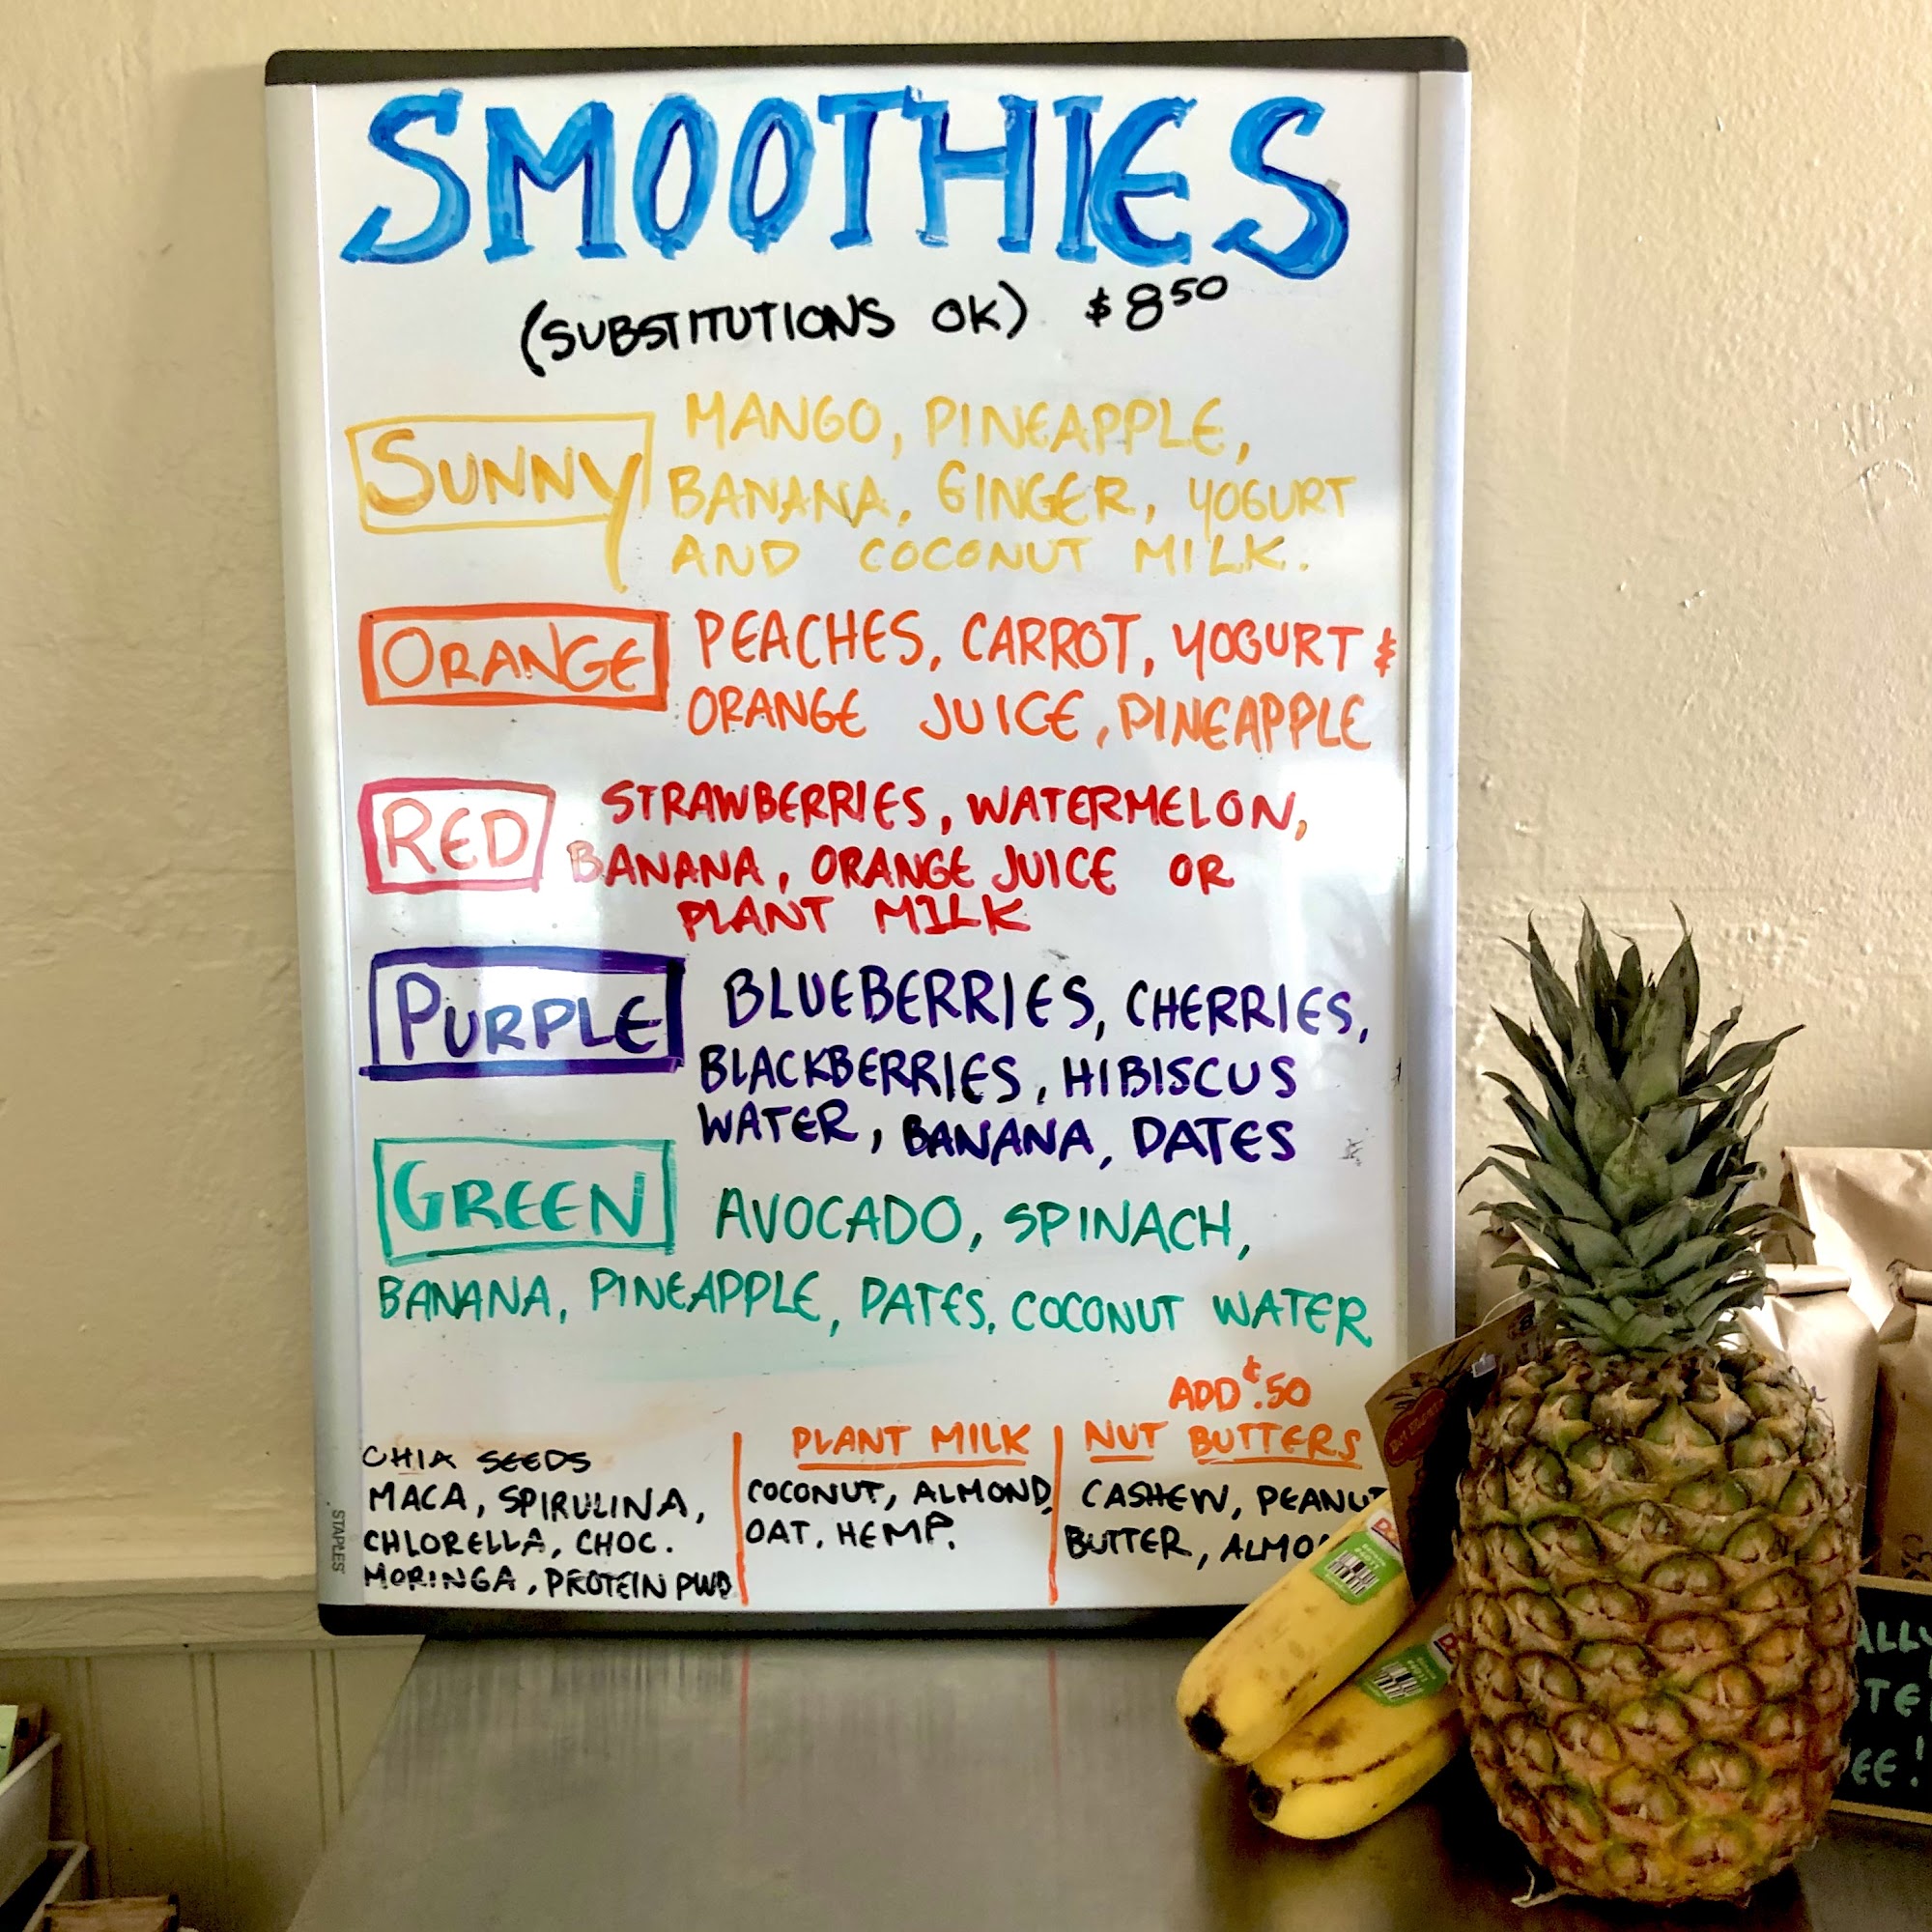 SMOOTHIES
(SUBSTITUTIONS OK) $850
SUNNY
MANGO, PINEAPPLE,
BANANA, GINGER, YOGURT
AND COCONUT MILK.
ORANGE
PEACHES, CARROT, YOGURT &
ORANGE JUICE, PINEAPPLE
RED
STRAWBERRIES, WATERMELON,
BANANA, ORANGE JUICE OR
PLANT MILK
PURPLE
BLUEBERRIES, CHERRIES,
BLACKBERRIES, HIBISCUS
WATER, BANANA, DATES
GREEN
AVOCADO, SPINACH,
BANANA, PINEAPPLE, DATES, COCONUT WATER
CHIA SEEDS
MACA, SPIRULINA,
CHLORELLA, CHOC.
MORINGA, PROTEIN PWD
PLANT MILK
COCONUT, ALMOND,
OAT, HEMP.
ADD ¢.50
NUT BUTTERS
CASHEW, PEANUT
BUTTER,
STAPLES